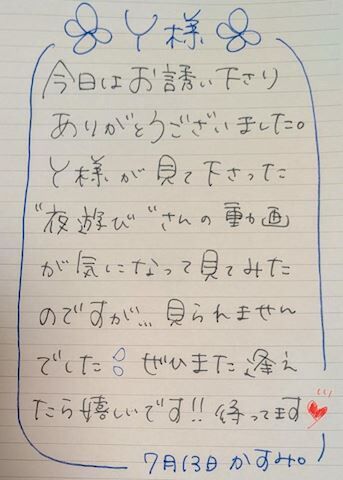 Y様
今日はお誘い下さり
ありがとうございました。
Y様が見て下さった
"夜遊び"さんの動画
が気になって見てみた
のですが... 見られません
でした ぜひまた逢え
たら嬉しいです!! 待ってます
7月13日 かすみ。